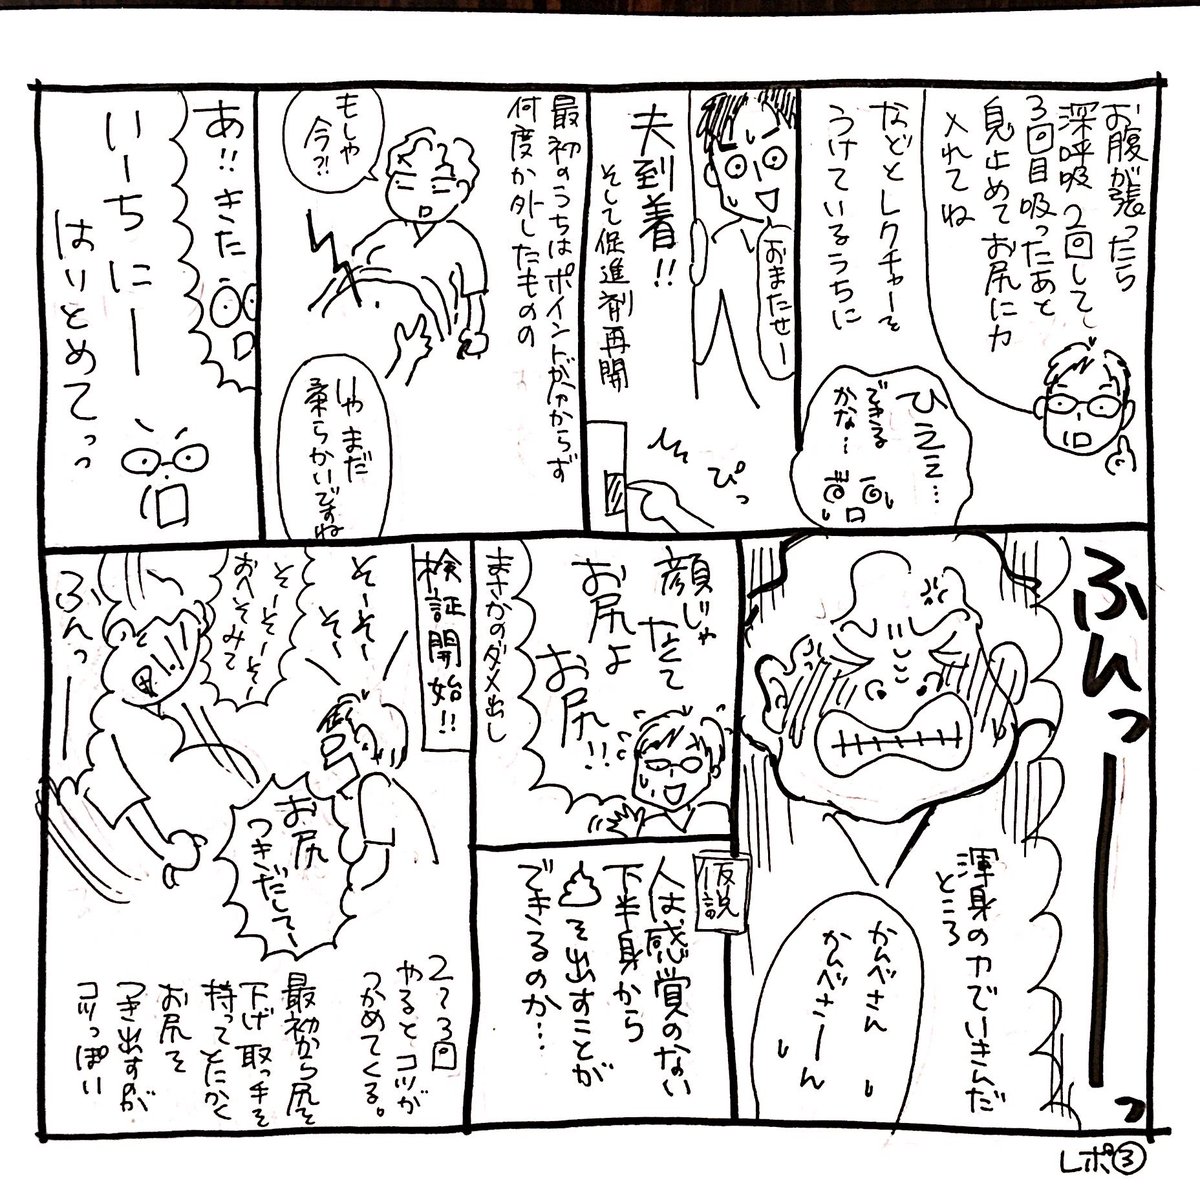 お腹が張ったら
深呼吸2回して
3回目吸ったあと
息止めてお尻に力
入れてね
などとレクチャーを
うけているうちに
ひえええ…
できる
かな…
おまたせー
夫到着!!
そして促進剤再開
ぴっ
最初のうちはポイントがわからず
何度か外したものの
もしや
今?!
いやまだ
柔らかいですね
あ!!きた
いーちにー
はいとめてっっ
ふんっーっ
渾身の力でいきんだ
ところ
かんべさん
かんべさーん
顔じゃ
なくて
お尻よ
お尻!!
まさかのダメ出し
仮説
人は感覚のない
下半身から
💩を出すことが
できるのか…
検証開始!!
そーそー
そー
そーそーそー
おへそみて
ふんっー
お尻
つきだしてー
2〜3回
やるとコツが
つかめてくる。
最初から尻を
下げ取っ手を
持ってとにかく
お尻を
つき出すのが
コツっぽい
レポ③